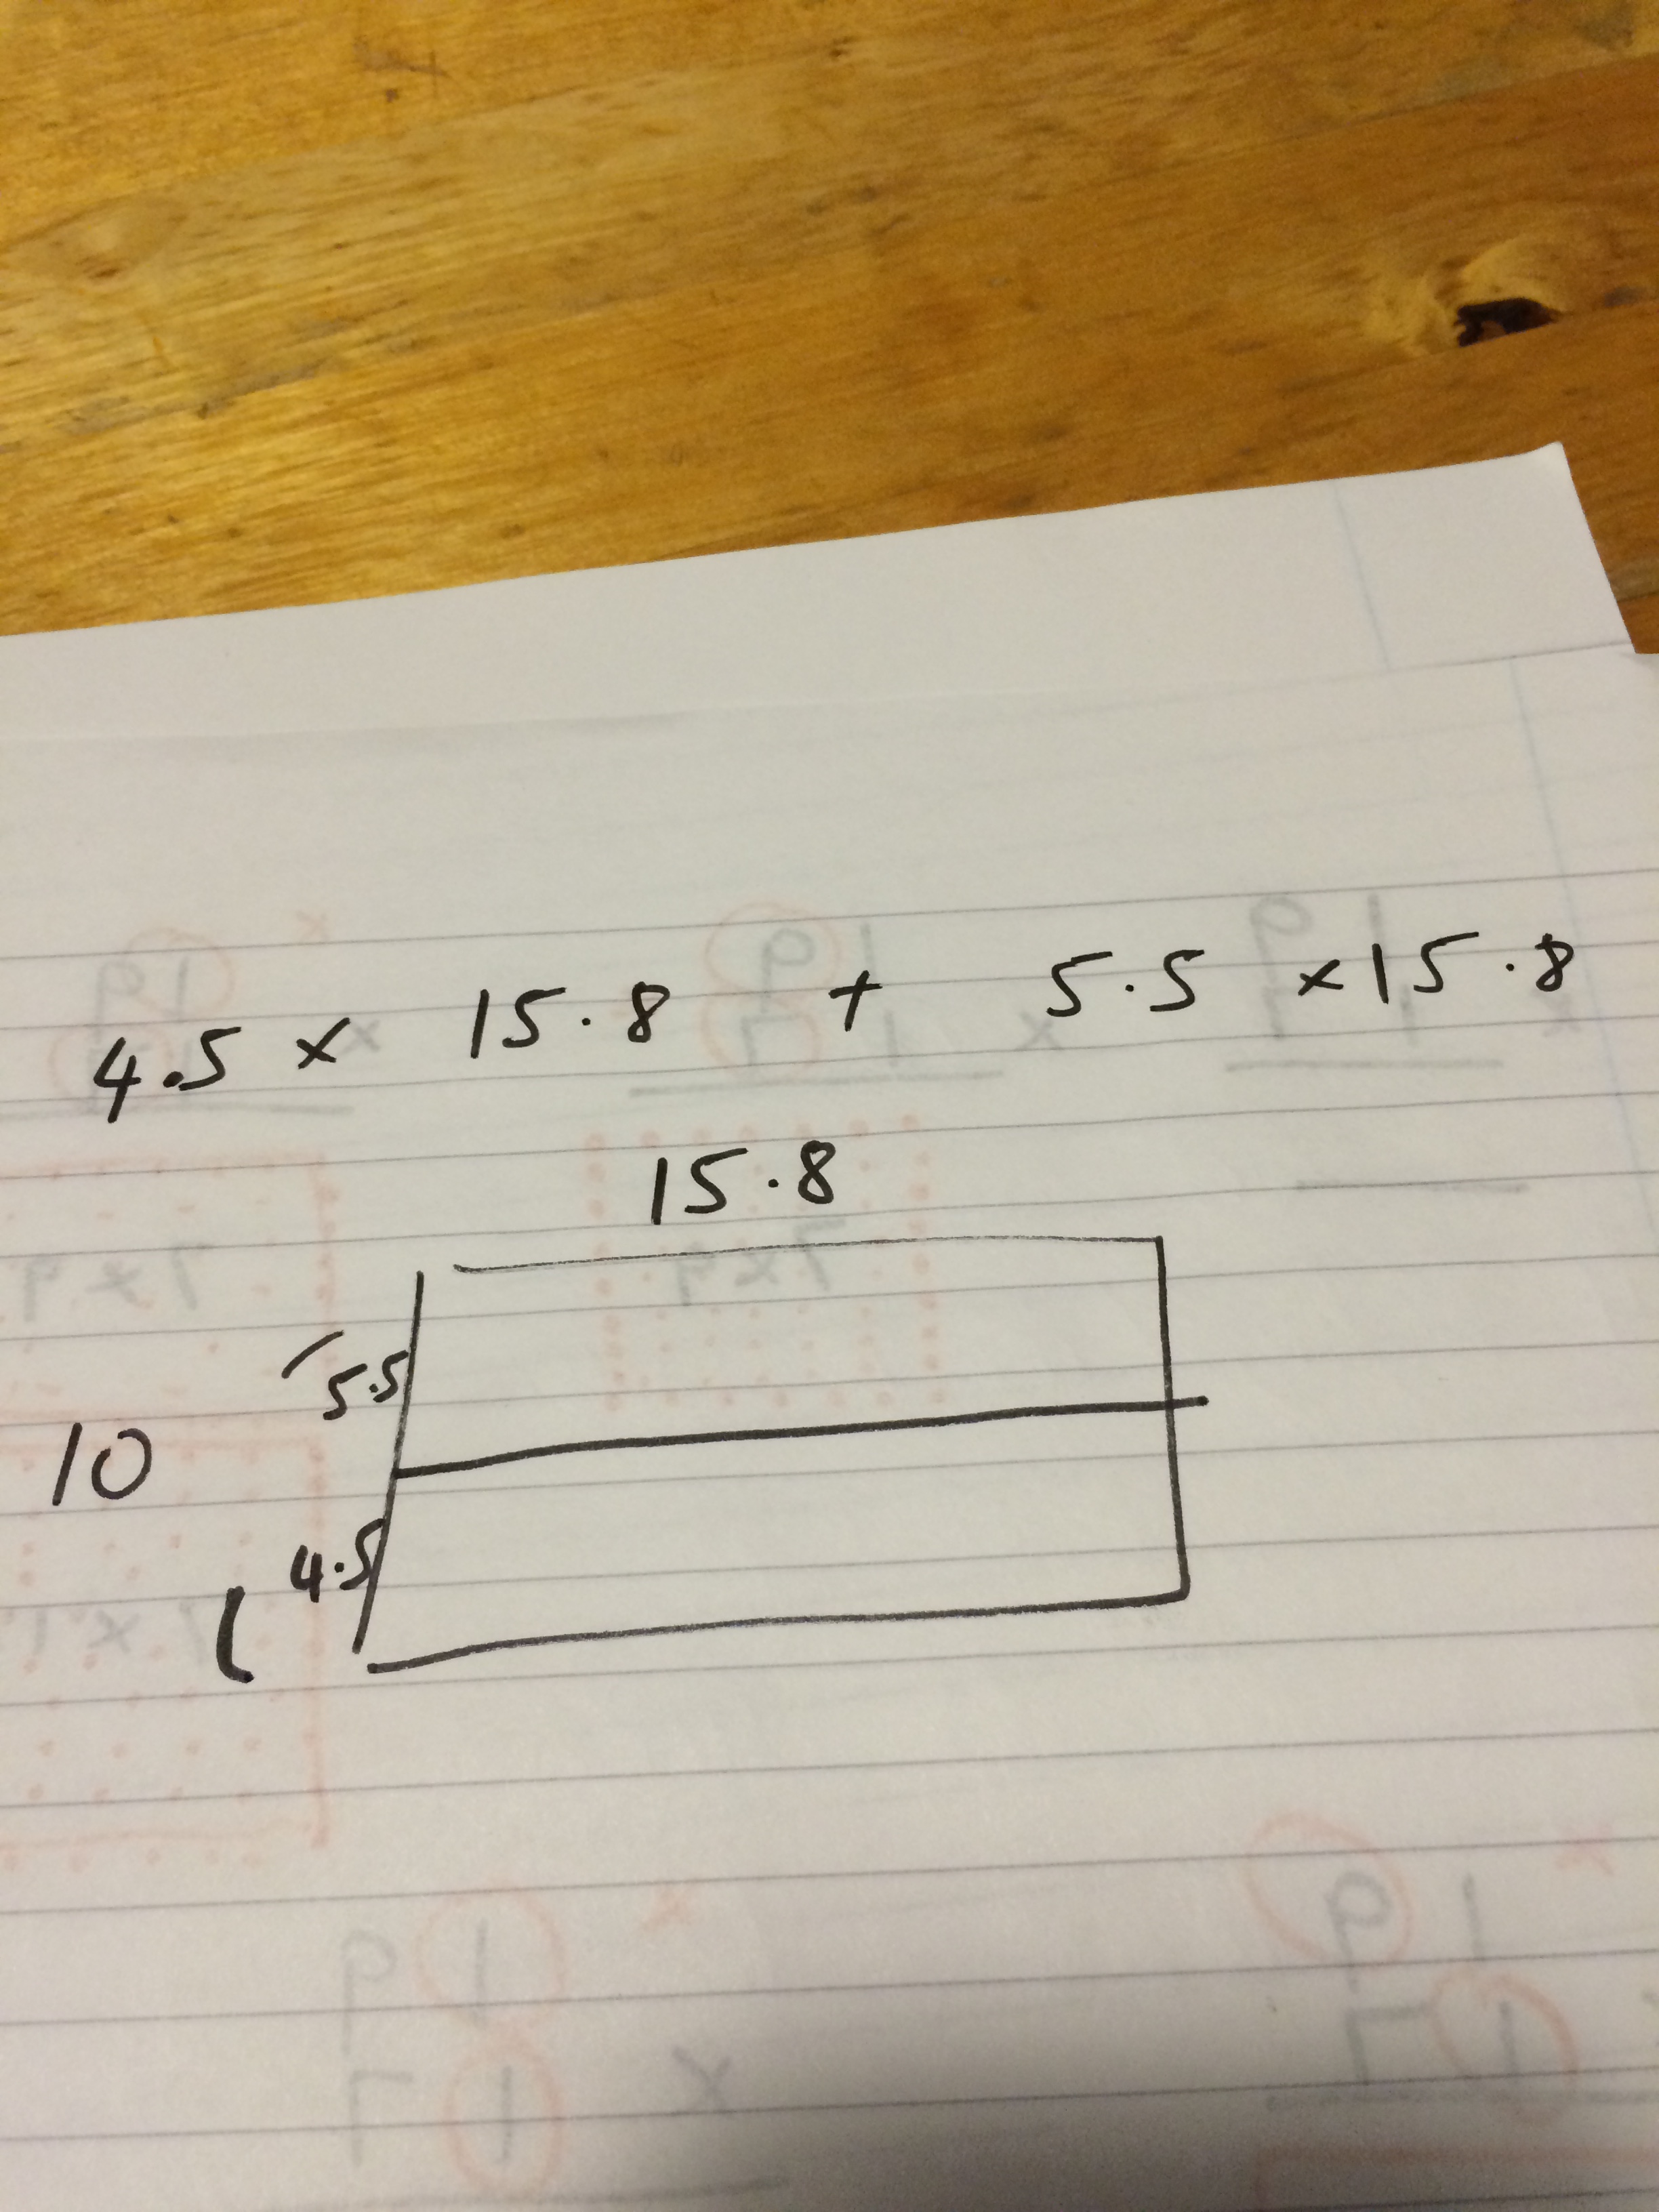 4.5 × 15.8 + 5.5 × 15.8
15.8
5.5
10
4.5